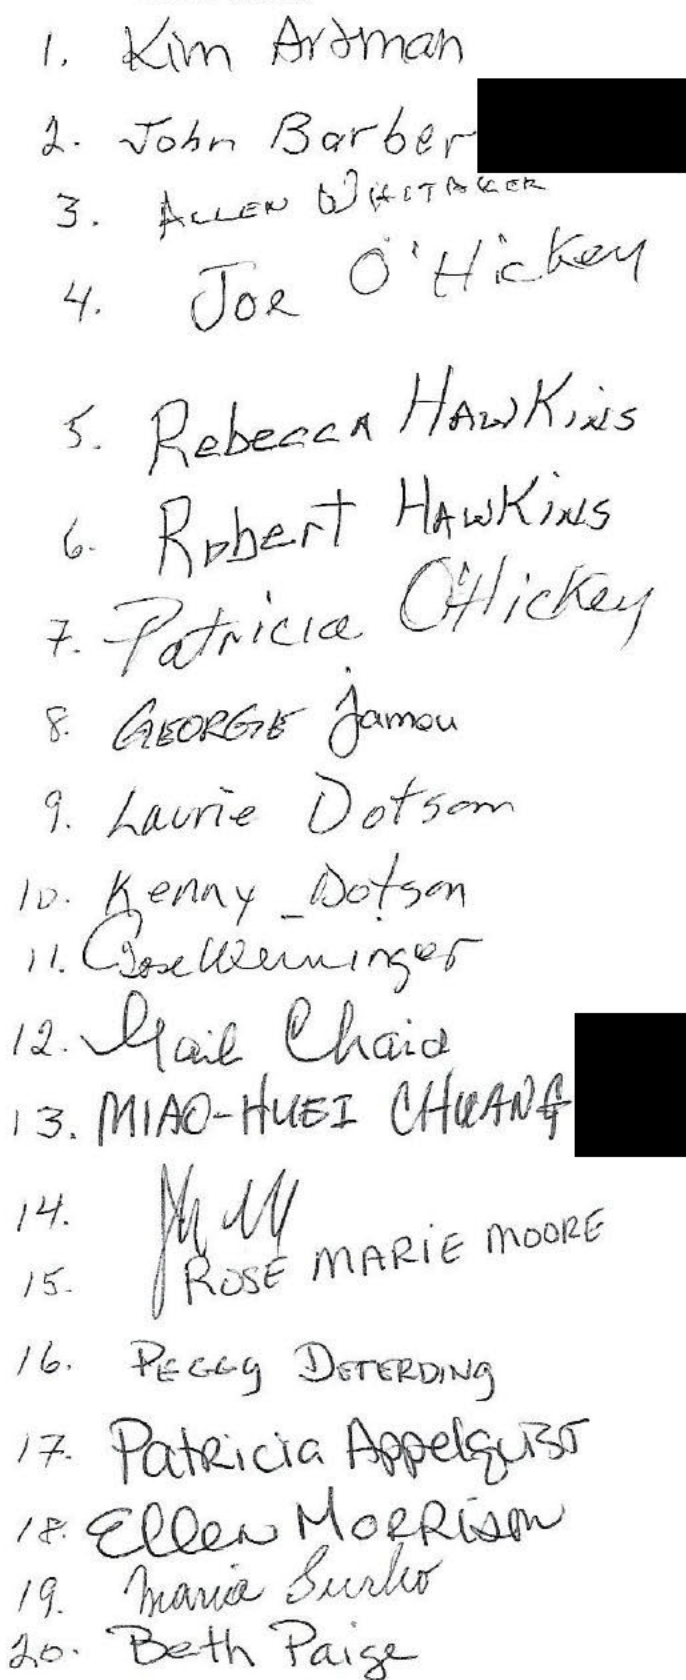 1. Kim Artman
2. John Barber
3. ALLEN WHITAKER
4. Joe O'Hickey
5. Rebecca HAWKiNS
6. Robert HAWKiNS
7. Patricia O'Hickey
8. GEORGE Jamou
9. Laurie Dotson
10. Kenny Dotson
11.
12. Gail Chaid
13. MIAO-HUEI CHUANG
14.
15. ROSE MARiE MOORE
16. PEGGy DETERDING
17. Patricia Appelquist
18. Ellen MORRison
19. Maria
20. Beth Paige